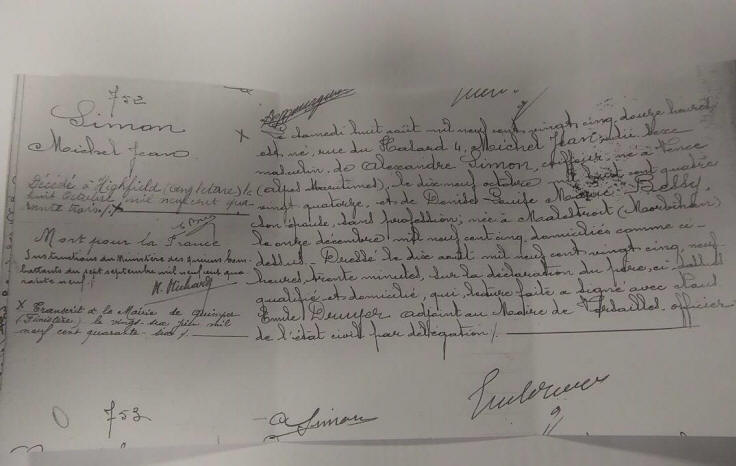 752
Simon
Michel Jean
Décédé à Highfield (Angleterre) le
huit octobre mil neuf cent qua-
rante trois./. X
Mort pour la France
Instructions du Ministère des anciens com-
battants du sept septembre mil neuf cent qua-
rante neuf
X Transcrit à la Mairie de Quimper
(Finistère) le vingt-six juin mil
neuf cent quarante-six ./.
X Le samedi huit août mil neuf cent vingt cinq, douze heures
est né, rue du 4, Michel Jean, du sexe
masculin, de Alexandre Simon, né à Vence
(Alpes Maritimes), le dix neuf octobre mil huit cent quatre
vingt quatorze, et de Denise Louise Bessy,
son épouse, sans profession, née à Malestroit (Morbihan)
le onze décembre mil neuf cent cinq, domiciliés comme ci-
dessus. - Dressé le dix août mil neuf cent vingt cinq, neuf
heures trente minutes, sur la déclaration du père, ci-dessus
qualifié et domicilié, qui, lecture faite a signé avec
Emile adjoint au Maire de Versailles, officier
de l'état civil par délégation /.
753
A Simon